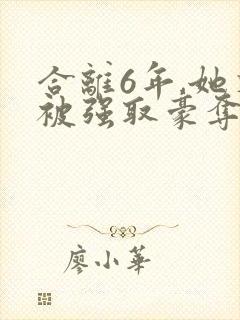 合離6年,她
被强取豪奪
廖小華